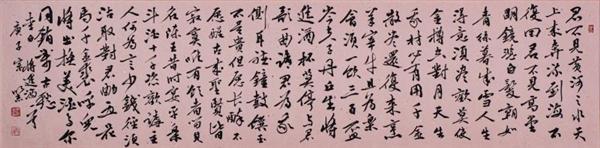 君不見黄河之水天
上来奔流到海不
復回君不見高堂
明鏡悲白髮朝如
青絲暮成雪人生
得意須盡歡莫使
金樽空對月天生
我材必有用千金
散盡還復来烹
羊宰牛且為樂
會須一飲三百杯
岑夫子丹丘生将
進酒杯莫停与君
歌一曲請君為我
側耳聽鐘鼓饌玉
不足貴但願長醉不
願醒古来聖賢皆
寂寞惟有飲者留其
名陳王昔時宴平樂
斗酒十千恣歡謔主
人何為言少錢徑須
沽取對君酌五花
馬千金裘呼兒
将出換美酒与爾
同銷萬古愁
李白将進酒
庚子